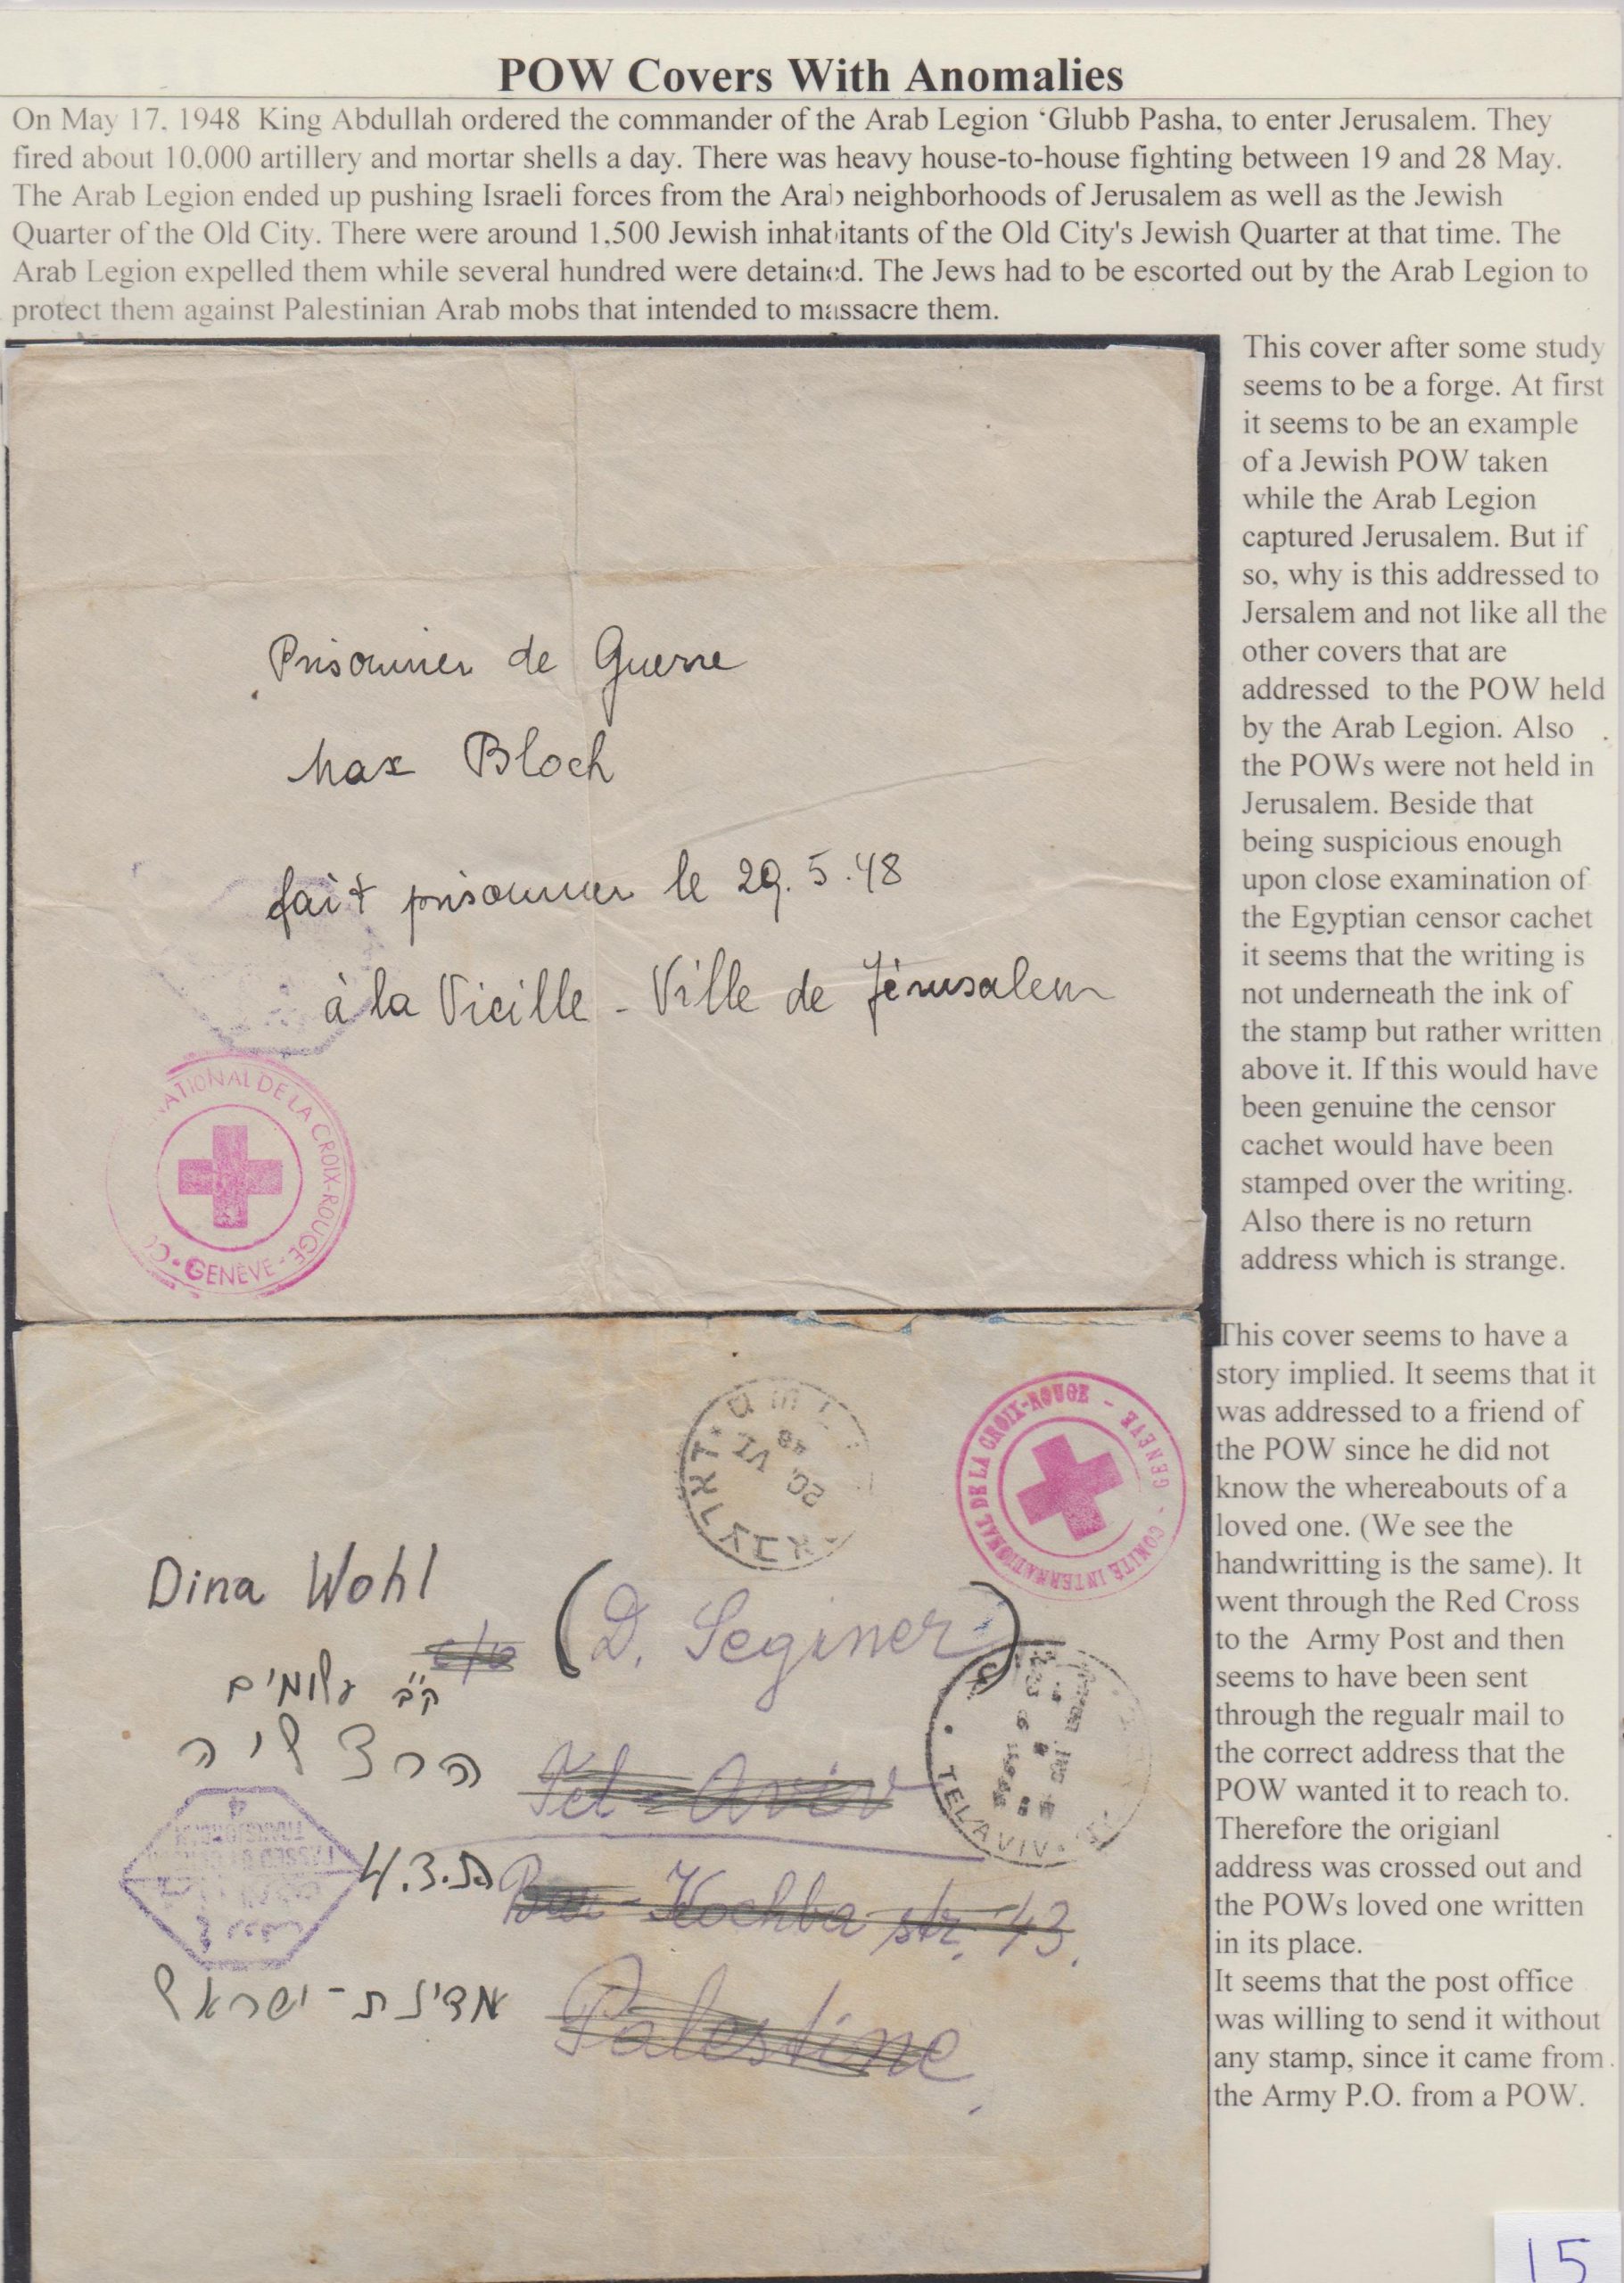 POW Covers With Anomalies
On May 17, 1948 King Abdullah ordered the commander of the Arab Legion ‘Glubb Pasha, to enter Jerusalem. They
fired about 10.000 artillery and mortar shells a day. There was heavy house-to-house fighting between 19 and 28 May.
The Arab Legion ended up pushing Israeli forces from the Arab neighborhoods of Jerusalem as well as the Jewish
Quarter of the Old City. There were around 1,500 Jewish inhabitants of the Old City's Jewish Quarter at that time. The
Arab Legion expelled them while several hundred were detained. The Jews had to be escorted out by the Arab Legion to
protect them against Palestinian Arab mobs that intended to massacre them.
This cover after some study
seems to be a forge. At first
it seems to be an example
of a Jewish POW taken
while the Arab Legion
captured Jerusalem. But if
so, why is this addressed to
Jersalem and not like all the
other covers that are
addressed to the POW held
by the Arab Legion. Also
the POWs were not held in
Jerusalem. Beside that
being suspicious enough
upon close examination of
the Egyptian censor cachet
it seems that the writing is
not underneath the ink of
the stamp but rather written
above it. If this would have
been genuine the censor
cachet would have been
stamped over the writing.
Also there is no return
address which is strange.
Prisonnier de Guerre
Max Bloch
fait prisonnier le 29.5.48
à la Vieille - Ville de Jérusalem
NATIONAL DE LA CROIX-ROUGE - GENÈVE • CO
This cover seems to have a
story implied. It seems that it
was addressed to a friend of
the POW since he did not
know the whereabouts of a
loved one. (We see the
handwritting is the same). It
went through the Red Cross
to the Army Post and then
seems to have been sent
through the regualr mail to
the correct address that the
POW wanted it to reach to.
Therefore the origianl
address was crossed out and
the POWs loved one written
in its place.
It seems that the post office
was willing to send it without
any stamp, since it came from
the Army P.O. from a POW.
20 VI 48
COMITÉ INTERNATIONAL DE LA CROIX-ROUGE - GENÈVE
Dina Wohl
c/o (D. Seginer)
ק"ב עלומים
הרצליה
Tel-Aviv
TEL AVIV
ת.ד. 4
Bar-Kochba str. 43.
מדינת-ישראל
Palestine.
PASSED BY CENSOR
TRANSJORDAN
4
15